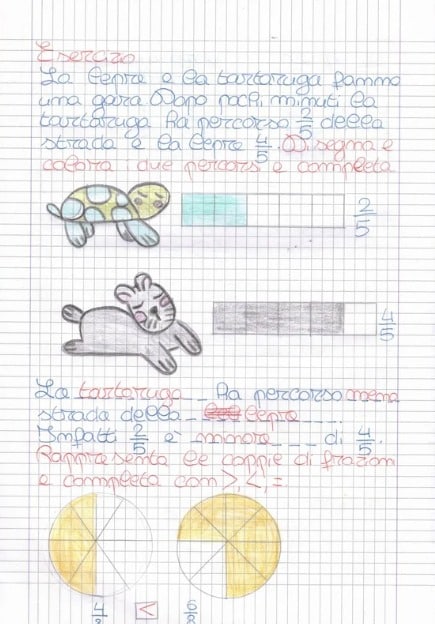 Esercizio
La lepre e la tartaruga fanno
una gara Dopo pochi minuti la
tartaruga ha percorso 2/5 della
strada e la lepre 4/5. Disegna e
colora i due percorsi e completa
2/5
4/5
La tartaruga ha percorso meno
strada della lepre.
Infatti 2/5 è minore di 4/5.
Rappresenta le coppie di frazioni
e completa con >, <, =
4/8 < 6/8